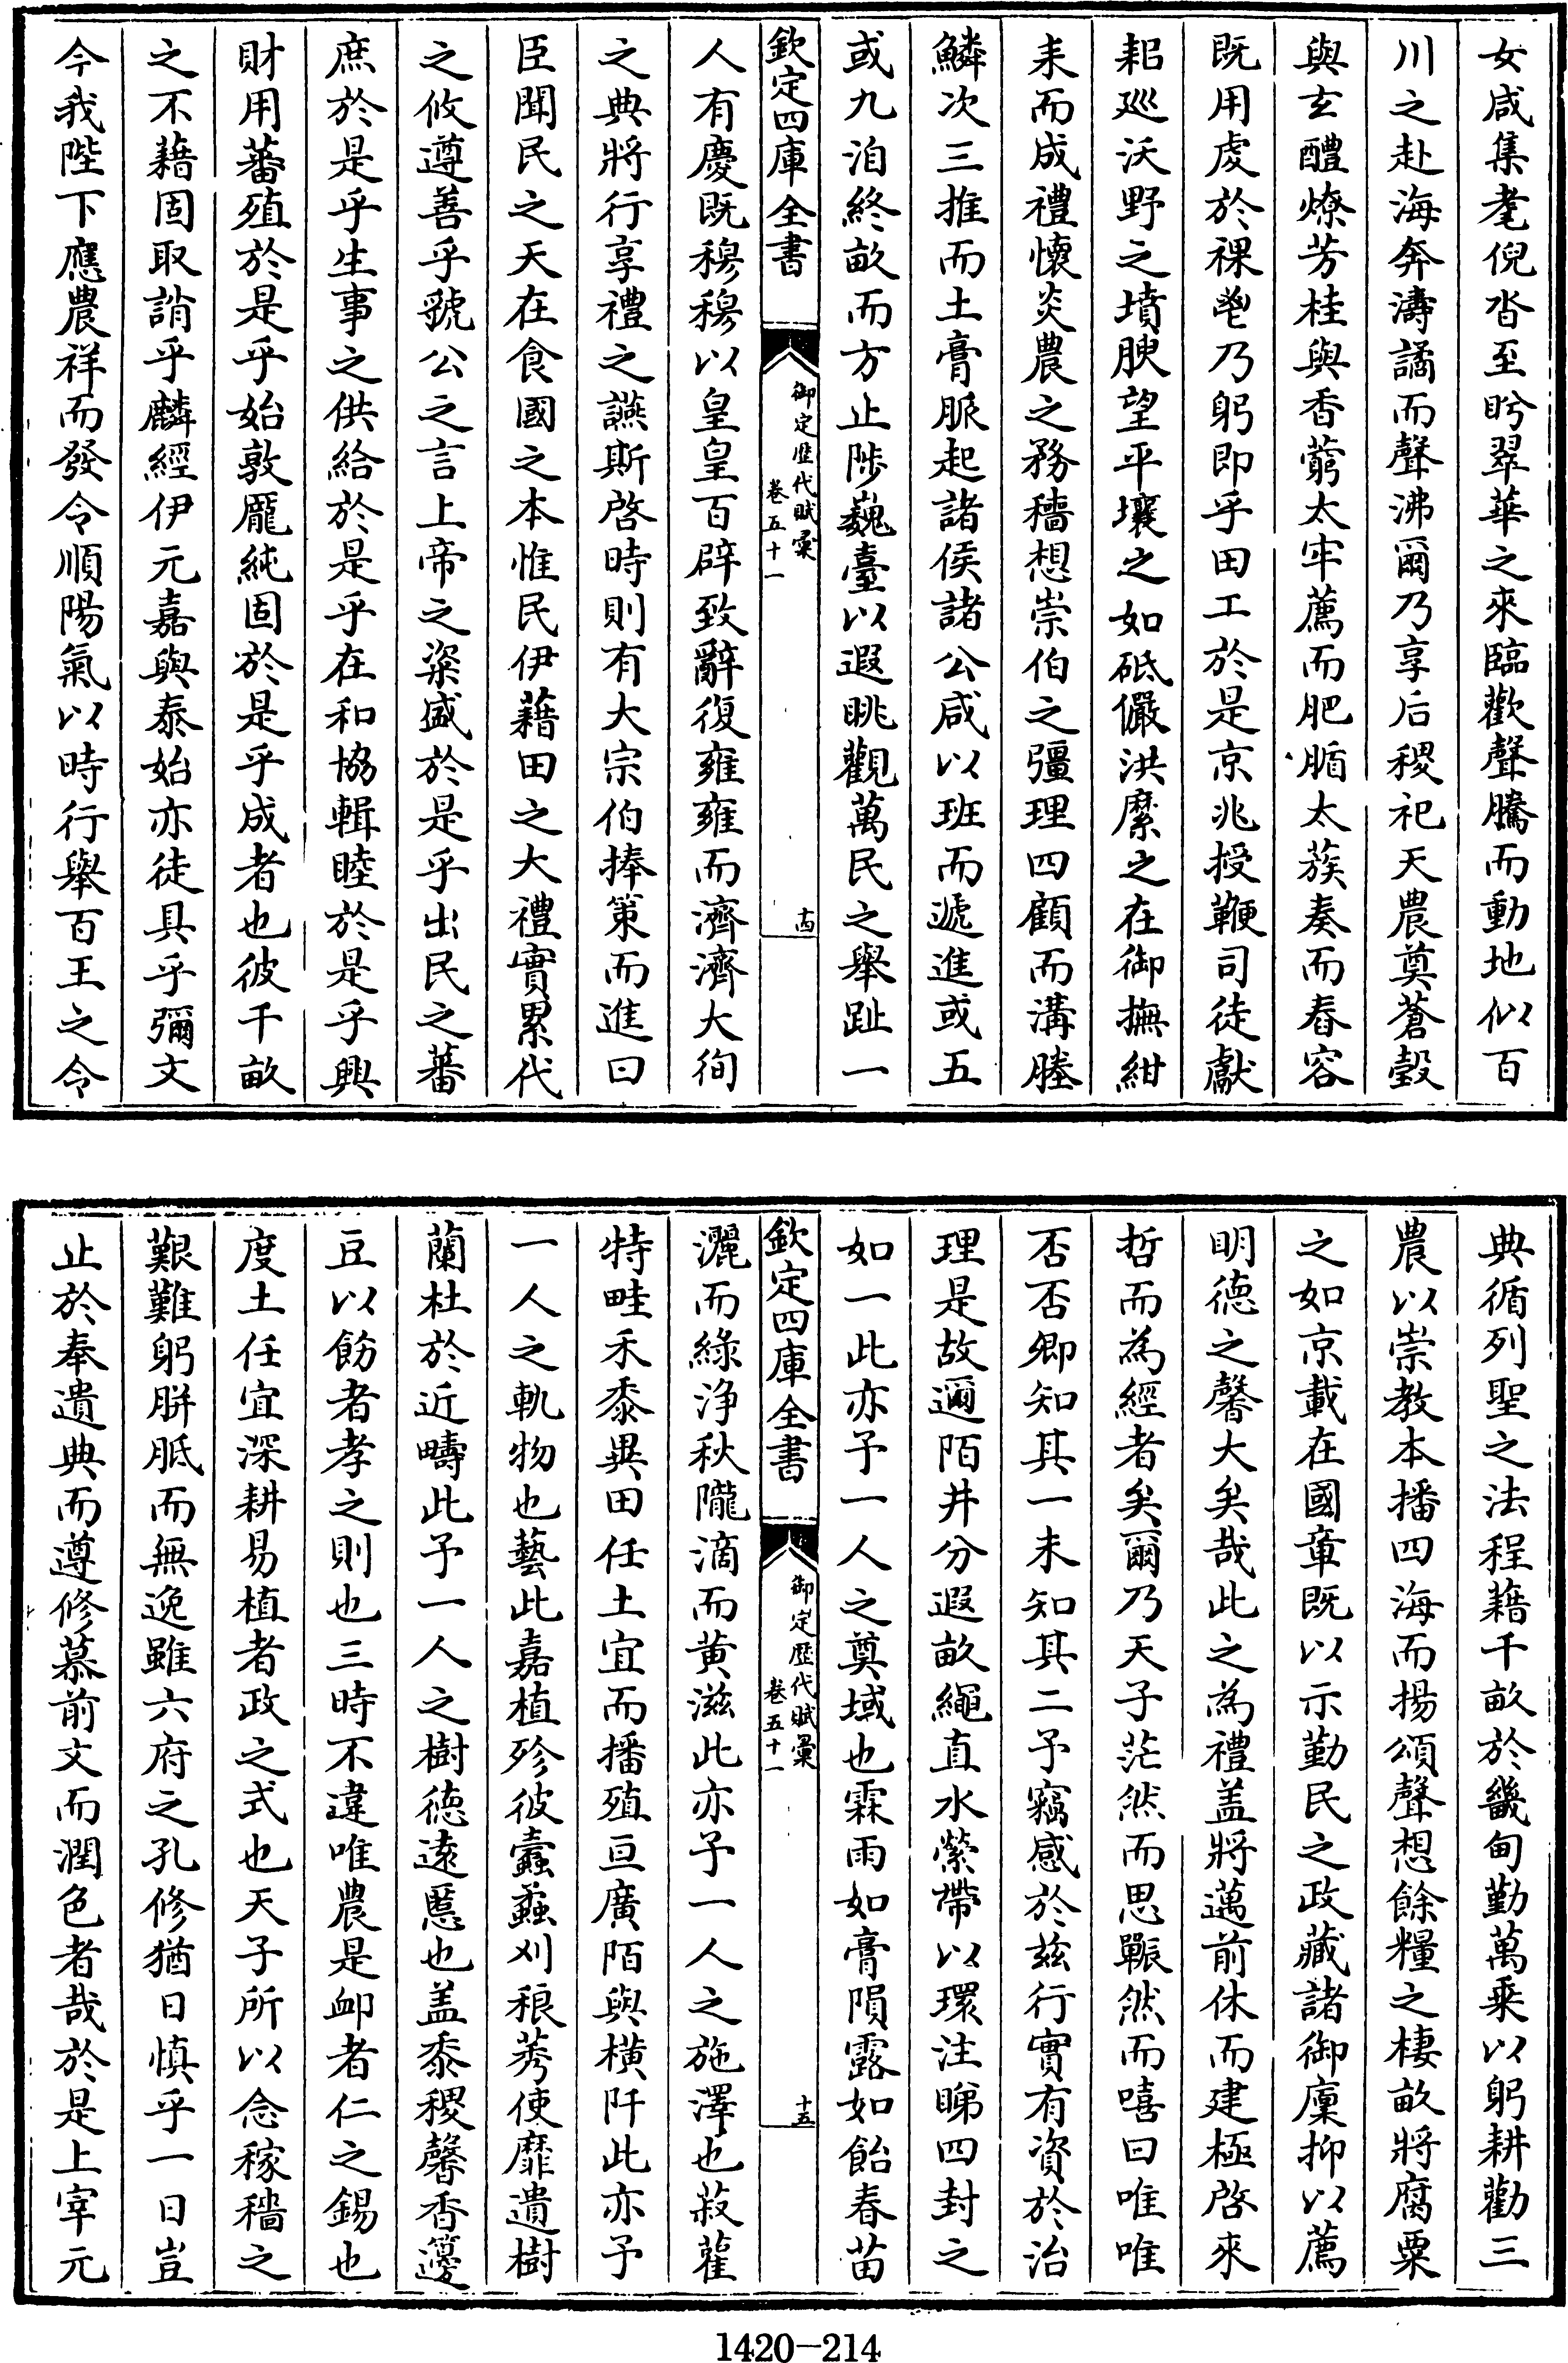 女咸集耄倪沓至盻翠華之來臨歡聲騰而動地似百
川之赴海奔濤譎而聲沸爾乃享后稷祀天農奠蒼瑴
與玄醴燎芳桂與香藭太牢薦而肥腯太蔟奏而舂容
既用虔於祼鬯乃躬即乎田工於是京兆授鞭司徒獻
耜廵沃野之墳腴望平壤之如砥儼洪縻之在御撫紺
耒而成禮懷炎農之務穡想崇伯之彊理四顧而溝塍
鱗次三推而土膏脈起諸侯諸公咸以班而遞進或五
或九洎終畝而方止陟巍臺以遐眺觀萬民之舉趾一
欽定四庫全書
御定歴代賦彚
卷五十一
十四
人有慶既穆穆以皇皇百辟致辭復雍雍而濟濟大徇
之典將行享禮之讌斯啓時則有大宗伯捧策而進曰
臣聞民之天在食國之本惟民伊藉田之大禮實累代
之攸遵善乎虢公之言上帝之粢盛於是乎出民之蕃
庶於是乎生事之供給於是乎在和協輯睦於是乎興
財用蕃殖於是乎始敦厖純固於是乎成者也彼千畝
之不藉固取誚乎麟經伊元嘉與泰始亦徒具乎彌文
今我陛下應農祥而發令順陽氣以時行舉百王之令
典循列聖之法程藉千畝於畿甸勤萬乗以躬耕勸三
農以崇教本播四海而揚頌聲想餘糧之棲畝將腐粟
之如京載在國章既以示勤民之政藏諸御廩抑以薦
明徳之馨大矣哉此之為禮盖將邁前休而建極啓來
哲而為經者矣爾乃天子茫然而思囅然而嘻曰唯唯
否否卿知其一未知其二予竊感於兹行實有資於治
理是故邇陌井分遐畝繩直水縈帶以環注睇四封之
如一此亦予一人之奠域也霖雨如膏隕露如飴春苗
欽定四庫全書
御定歴代賦彚
卷五十一
十五
灑而綠浄秋隴滴而黄滋此亦予一人之施澤也菽藿
特畦禾黍異田任土宜而播殖亘廣陌與横阡此亦予
一人之軌物也藝此嘉植殄彼蠹蝨刈稂莠使靡遺樹
蘭杜於近疇此予一人之樹徳逺慝也盖黍稷馨香籩
豆以飭者孝之則也三時不違唯農是卹者仁之錫也
度土任宜深耕易植者政之式也天子所以念稼穡之
艱難躬胼胝而無逸雖六府之孔修猶日慎乎一日豈
止於奉遺典而遵修慕前文而潤色者哉於是上宰元
1420-214